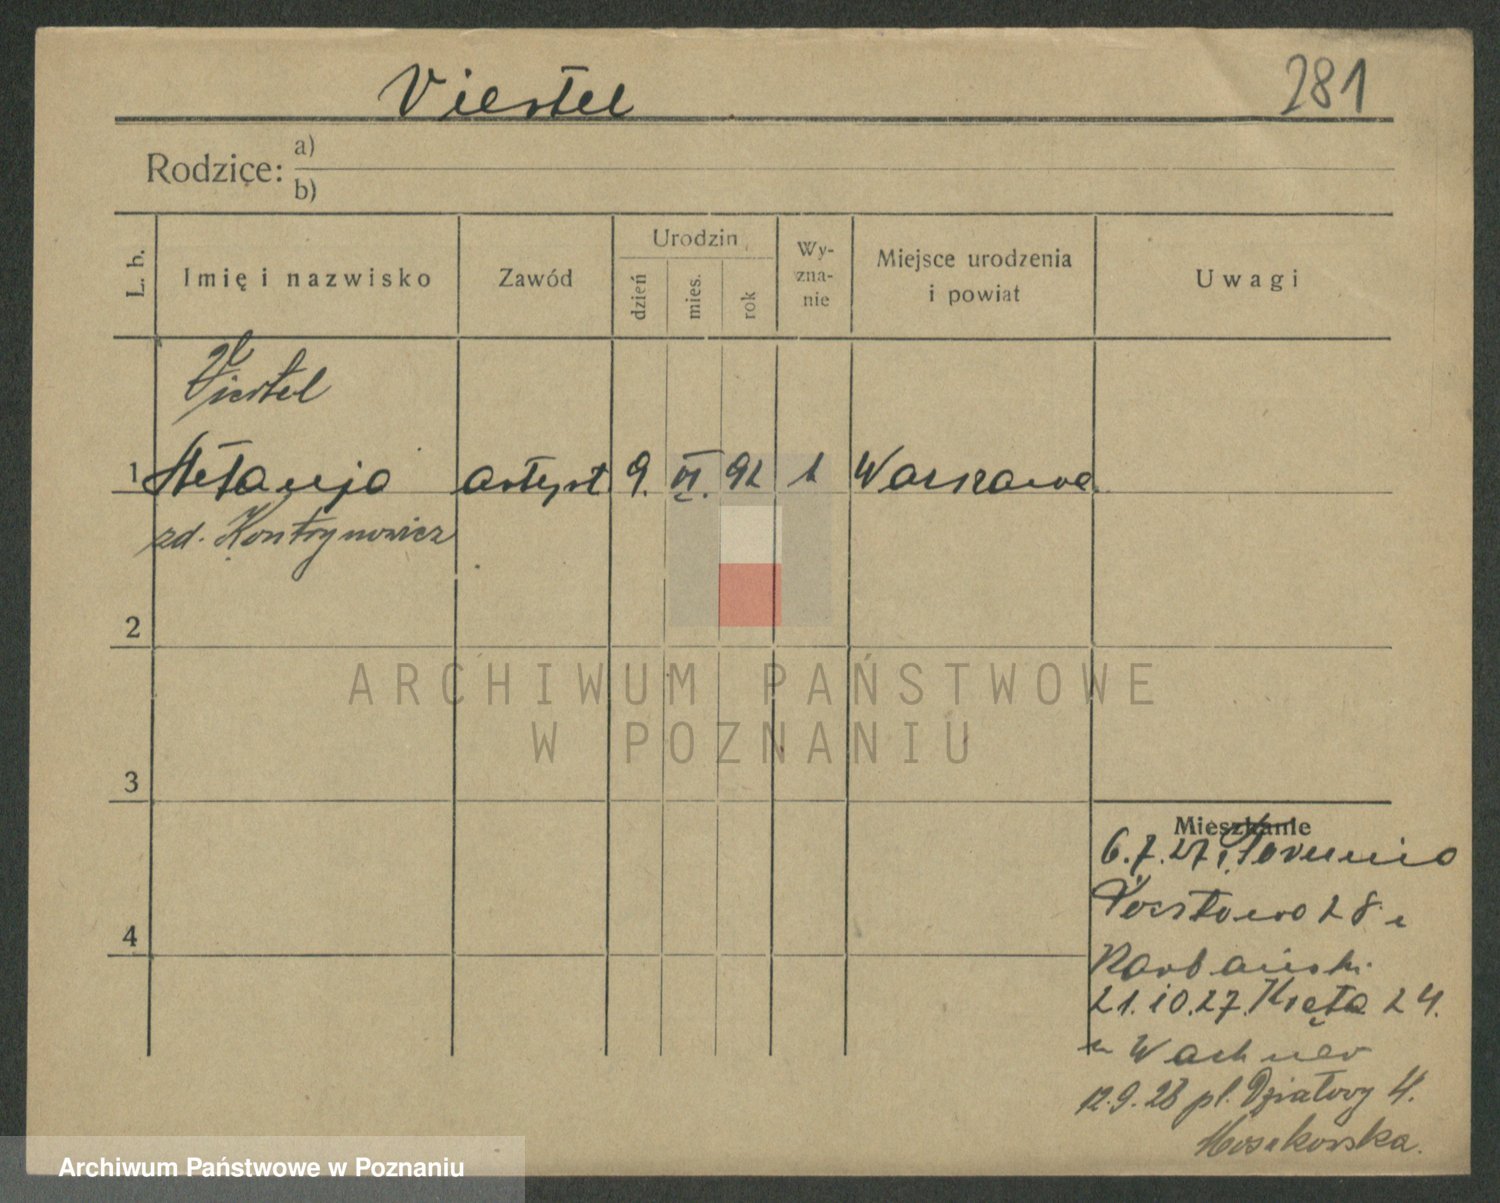 Viertel
281
Rodzice: a)
b)
L. b.
Imię i nazwisko
Zawód
Urodzin
dzień
mies.
rok
Wy-
zna-
nie
Miejsce urodzenia
i powiat
Uwagi
Viertel
1 artyst. 9. VI. 92 Warszawa
zd. Kontrymowicz
2
ARCHIWUM PAŃSTWOWE
W POZNANIU
3
Mieszkanie
6.7.27 z Torunia
28 u
4
21.10.27. Kręta 24.
u Wachner
12.9.28 pl. Działowy 4.
Archiwum Państwowe w Poznaniu